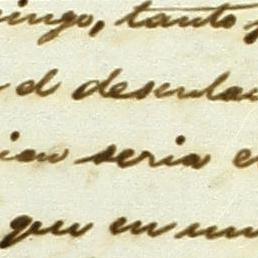 ingo, tanto
d desenla
ian seria e
que en un